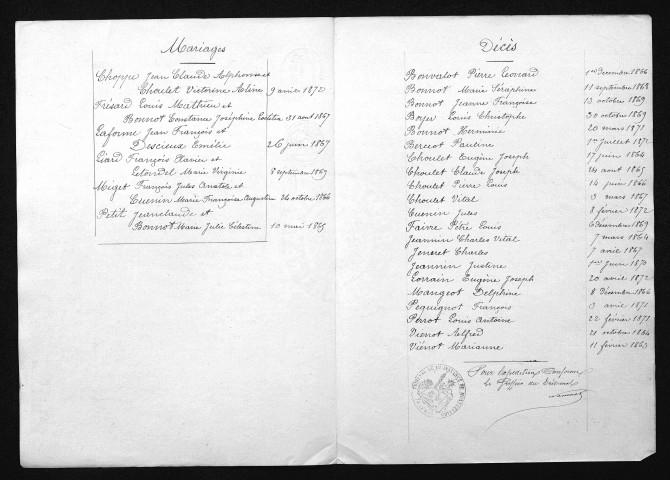 Mariages
Choppe Jean Claude Alphonse et
Choulet Victorine Adline 9 avril 1872
Frésard Louis Mathieu et
Bonnot Constance Joséphine 31 aout 1867
Laforme Jean François et
Descieux Emélie 26 juin 1867
Liard François Xavier et
Létondel Marie Virginie 8 septembre 1867
Miget François Jules Anatole et
Cuenin Marie Françoise Augustine 24 octobre 1866
Petit Jeanclaude et
Bonnot Marie Julie Célestine 10 mai 1865
Décès
Bonvalot Pierre Léonard 1er décembre 1866
Bonnot Marie Séraphine 11 septembre 1863
Bonnot Jeanne Françoise 13 octobre 1869
Boyer Louis Christophe 30 octobre 1869
Bonnot Herminie 20 mars 1871
Berçot Pauline 1er juillet 1872
Choulet Eugène Joseph 17 juin 1864
Choulet Claude Joseph 24 aout 1865
Choulet Pierre Louis 14 juin 1866
Choulet Vital 3 mars 1867
Cuenin Jules 8 février 1872
Faivre Pètre Louis 6 décembre 1869
Jeannin Charles Vital 7 mars 1864
Jeneret Charles 7 avril 1867
Jeannin Justine 1er juin 1870
Lorrain Eugène Joseph 20 avril 1872
Mangeot Delphine 8 décembre 1866
Pequignot François 3 avril 1871
Perrot Louis Antoine 22 février 1871
Viénot Alfred 21 octobre 1864
Viénot Marianne 11 février 1863
Pour Expédition Conforme
Le Greffier du Tribunal